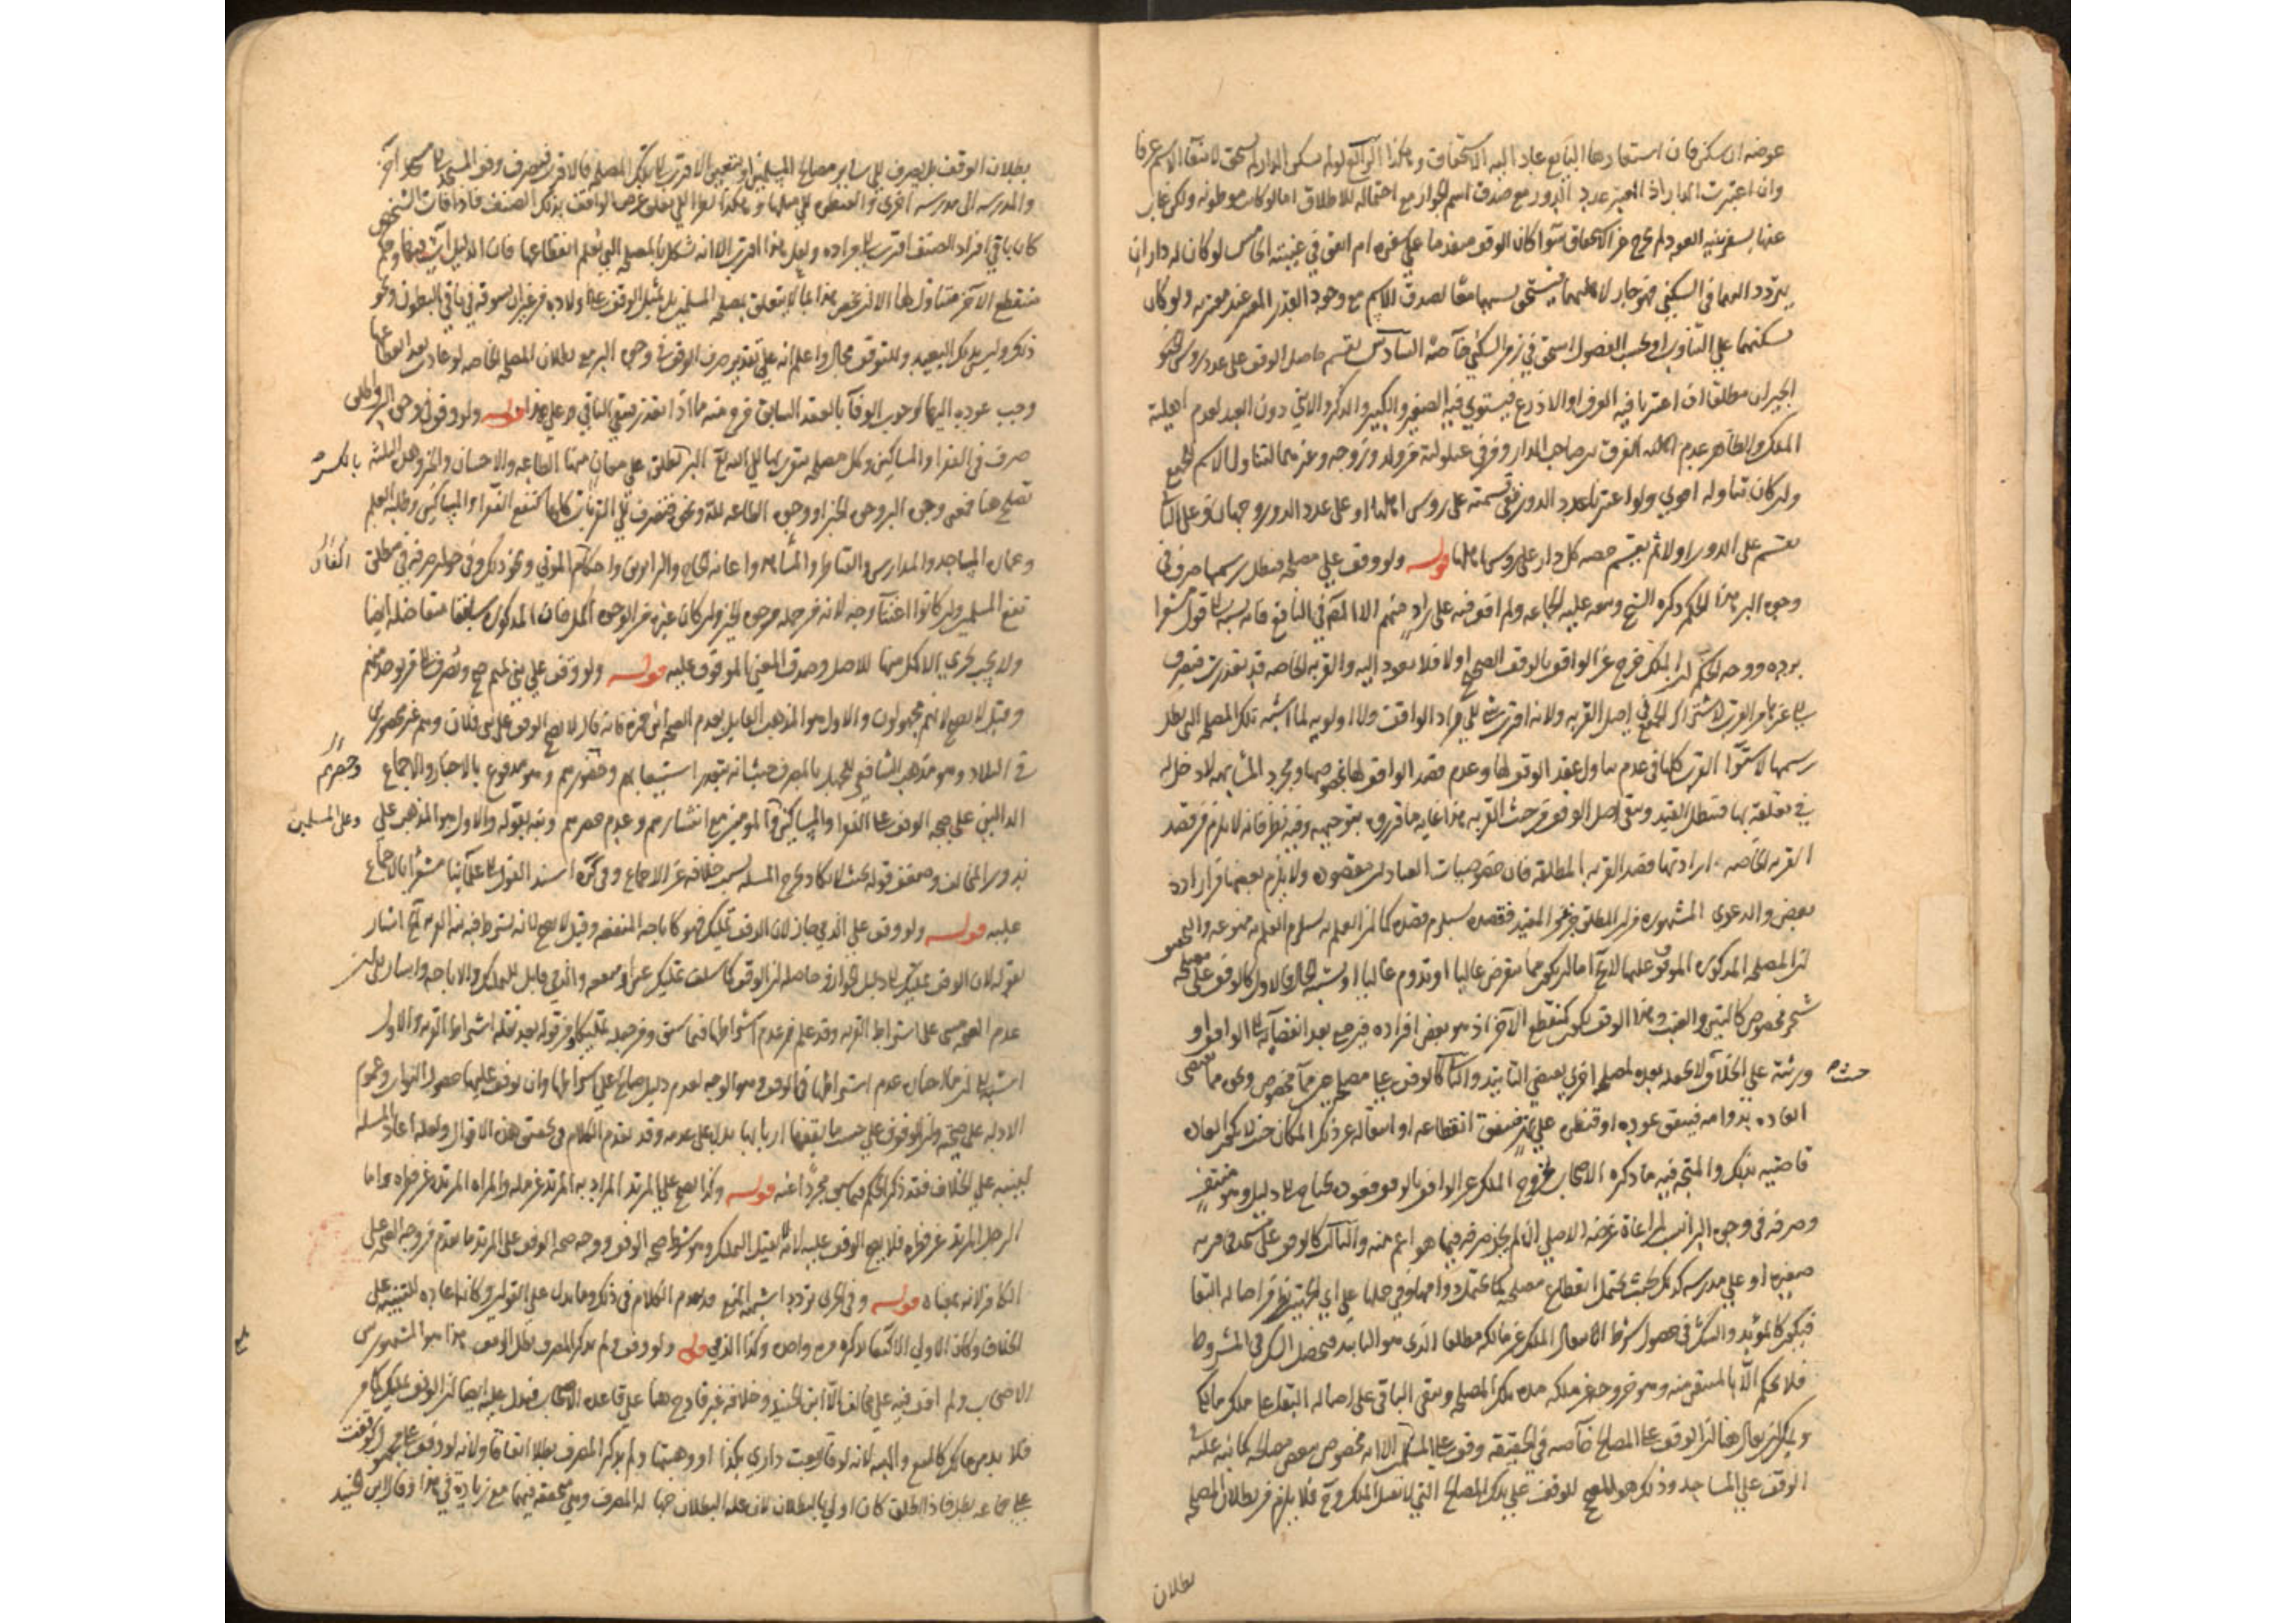 عوضه ان سكن فان استعارها البايع عاد اليه الاستحقاق وهكذا
وان اعتبرت الدار اذ المعتبر عدد الدور مع صدق اسم الجوار مع احتماله للاطلاق اما لو كانت موطونه ولكن غاب
عنها لسفر بنية العود لم يخرج عن الاستحقاق سوا كان الوقف متقدما على سفره ام اتفق في غيبته الخامس لو كان له داران
يتردد اليهما في السكنى فهو جار لاهلهما فيستحق بسببهما معا لصدق الاسم مع وجود القدر المعتبر عند معتبره ولو كان
يسكنهما على التناوب او بحسب الفصول استحق في زمن السكنى خاصة السادس يقسم حاصل الوقف على عدد روس
الجيران مطلقا ان اعتبرنا فيه العرف او الاذرع فيستوي فيه الصغير والكبير والذكر والانثى دون العبد لعدم اهلية
الملك والظاهر عدم الفرق بين صاحب الدار وغيره من عيلولته من ولد وزوجه وغيرهما لتناول الاسم للجميع
وان كان تناوله اقوى ولو اعتبرنا عدد الدور ففي قسمته على روس اهلها او على عدد الدور وجهان وعلى الثاني
يقسم على الدور اولا ثم يقسم حصه كل دار على روس اهلها قوله ولو وقف على مصلحة فبطل رسمها صرف في
وجوه البر هذا الحكم ذكره الشيخ وتبعه عليه الجماعه ولم اقف فيه على راد منهم الا المصنف في النافع فانه نسبه الى قول مشعرا
برده ووجه الحكم ان الملك خرج عن الواقف بالوقف الصحيح اولا فلا يعود اليه والقربه الخاصه قد تعذرت فيصرف
الى غيرها من القرب لاشتراك الجميع في اصل القربه ولانه اقرب شي الى مراد الواقف ولا اولويه لما اشبه تلك المصلحه التي بطل
رسمها لاستوا القرب كلها في عدم تناول عقد الوقف لها وعدم قصد الواقف لها بخصوصها ومجرد المشابهه لا دخل له
في تعلقه بها فيبطل القيد ويبقى اصل الوقف من حيث القربه هذا غايه ما قرروه بتوجيهه وفيه نظر فانه لا يلزم من قصد
القربه الخاصه وارادتها قصد القربه المطلقه فان خصوصيات العبادات مقصوده ولا يلزم بعضها من اراده
بعض والدعوى المشهوره من ان المطلق جزء من المقيد فقصده يستلزم قصده كما ان العلم به يستلزم العلم به ممنوعه والتحقيق
ان المصلحه المذكوره الموقوف عليها لا يخ اما ان يكون مما ينقرض غالبا او تدوم غالبا او يشتبه الحال فالاول كالوقف على مصلحة
شجر مخصوص كالتين والعنب وهذا الوقف يكون كمنقطع الاخر اذ هو بعض افراده فيرجع بعد انقضائه الى الواقف او
ورثته على الخلاف لا يجعله بعده لمصلحة اخرى يقتضي التابيد والثاني كالوقف على مصلحة عين من ماء مخصوص ونحوه مما تقتضي
حيث
العاده بدوامه فيتفق غوره او قنطره على نهر فيتفق انقطاعه او انتقاله عن ذلك المكان حيث لا يكون العاده
قاضيه بذلك والمتجه فيه ما ذكره الاصحاب لخروج الملك عن الواقف بالوقف فعوده يحتاج الى دليل وهو منتف
وصرفه في وجوه البر انسب لمراعاة غرضه الاصلي ان لم يجز صرفه فيما هو اعم منه والثالث كالوقف على مسجد في قريه
صغيره او على مدرسه كذلك بحيث يحتمل انقطاع مصلحته كما يحتمل دوامها وفي حملها على اي الجهتين نظر من اصاله البقا
فيكون كالمؤبد والشك في حصول شرط انتقال الملك عن مالكه مطلقا الذي هو التابيد فيحصل الشك في المشروط
فلا يحكم الا بالمتيقن منه وهو خروجه عن ملكه مده تلك المصلحه ويبقى الباقي على اصاله البقا على ملك مالكه
ويمكن ان يقال هنا ان الوقف على المصالح خاصه في الحقيقه وقف على المسلمين الا انه مخصوص ببعض مصالحهم كما نبه عليه في
الوقف على المساجد وذلك هو المصحح للوقف على تلك المصالح التي لا تقبل الملك وح فلا يلزم من بطلان المصلحه
بطلان
بطلان الوقف بل يصرف الى ساير مصالح المسلمين او يتعين الاقرب الى تلك المصلحه فالاقرب فيصرف وقف المسجد الى مسجد آخر
والمدرسه الى مدرسه اخرى والقنطره الى مثلها وهكذا نظرا الى تعلق غرض الواقف بذلك الصنف فاذا فات الشخص
كان باقي افراد الصنف اقرب الى مراده ولعل هذا اقرب الا انه يشكل بالمصلحه التي يعلم انقطاعها فان الدليل آت فيها وحكم
منقطع الآخر متناول لها الا ان يخص هذا بما لا يتعلق بمصلحه المسلمين بل بمثل الوقف على اولاده من غير ان يسوقه في باقي البطون ونحو
ذلك وليس بذلك البعيد وللتوقف مجال واعلم انه على تقدير صرف الوقف في وجوه البر مع بطلان المصلحه الخاصه لو عادت بعد انقطاعها
وجب عوده اليها لوجوب الوفا بالعقد السابق خرج منه ما اذا تعذر فيبقى الباقي قوله ولو وقف في وجوه البر واطلق
صرف في الفقرا والمساكين وكل مصلحه يتقرب بها الى الله تع البر يطلق على معان منها الطاعه والاحسان والخير وهذه الثلثه
بالكسر
تصلح هنا فمعنى وجوه البر وجوه الخير او وجوه الطاعه لله ونحوه فتصرف في القربات كلها كنفع الفقرا والمساكين وطلبه العلم
وعماره المساجد والمدارس والقناطر والمشاهد واعانه الحاج والزايرين واكفان الموتى ونحو ذلك وفي جواز صرفه في مطلق
اكفان
نفع المسلمين وان كانوا اغنيا وجه لانه من جمله وجوه الخير وان كان غيره من الوجوه اكمل فان المذكوره سابقا متفاضله ايضا
ولا يجب تحري الاكمل منها للاصل وصدق المعنى الموقوف عليه قوله ولو وقف على بني تميم صح ويصرف الى من يوجد منهم
وقيل لا يصح لانهم مجهولون والاول هو المذهب القايل بعدم الصحه ابن حمزه فانه قال لا يصح الوقف على بني فلان وهم غير محصورين
في البلاد وهو مذهب الشافعي للجهل بالمصرف حيث انه يتعذر استيعابهم وحضورهم وهو مدفوع بالاخبار والاجماع
وحصرهم
الدالين على صحه الوقف على الفقرا والمساكين والمومنين مع انتشارهم وعدم حصرهم ونبه بقوله والاول هو المذهب على
وعلى المسلمين
ندور المخالف وضعف قوله بحيث لا يكاد يخرج المسله بسبب خلافه عن الاجماع وفي كره اسند القول الى علمائنا مشعرا بالاجماع
عليه قوله ولو وقف على الذمي جاز لان الوقف تمليك فهو كاباحه المنفعه وقيل لا يصح لانه يشترط فيه نيه القربه الخ اشار
بقوله لان الوقف تمليك الى دليل الجواز وحاصله ان الوقف كما سلف تمليك عين او منفعه والذمي قابل للتمليك والاباحه
عدم الصحه مبني على اشتراط القربه وقد علم من عدم اشتراطها فيما سبق
اشتراطها في الوقف وهو الوجه لعدم دليل صالح على اشتراطها وان توقف عليها حصول الثواب وعموم
الادله على صحته وان الوقوف على حسب ما يقفها اربابها يدل على عدمه وقد تقدم الكلام في تحقيق هذه الاقوال ولعله اعاد المسله
لينبه على الخلاف فقد ذكر الحكم فيما سبق مجردا عنه قوله وكذا يصح على المرتد المراد به المرتد عن مله والمراه المرتده عن فطره واما
الرجل المرتد عن فطره فلا يصح الوقف عليه لانه لا يقبل التملك وهو شرط صحه الوقف ووجه صحه الوقف على المرتد ما تقدم من وجه الصحه على
الكافر لانه بمعناه قوله وفي الحربي تردد اشبهه المنع قد تقدم الكلام في ذلك وما يدل على القولين وكانه اعاده للتنبيه على
الخلاف وكان الاولى الاكتفا بذكره مره واحده وكذا الذمي قوله ولو وقف ولم يذكر المصرف بطل الوقف هذا هو المشهور بين
الاصحاب ولم اقف فيه على مخالف الا ابن الجنيد وخلافه غير قادح هنا على قاعده الاصحاب ويدل عليه ايضا ان الوقف تمليك كما مر
فلا بد من مالك كالبيع والهبه لانه لو قال بعت داري بكذا او وهبتها ولم يذكر المصرف بطلا اتفاقا ولانه لو وقف على مجهول كوقفت
على جماعه بطل فاذا اطلق كان اولى بالبطلان لان عله البطلان جهاله المصرف وهي متحققه فيهما مع زياده في هذا وقال ابن الجنيد